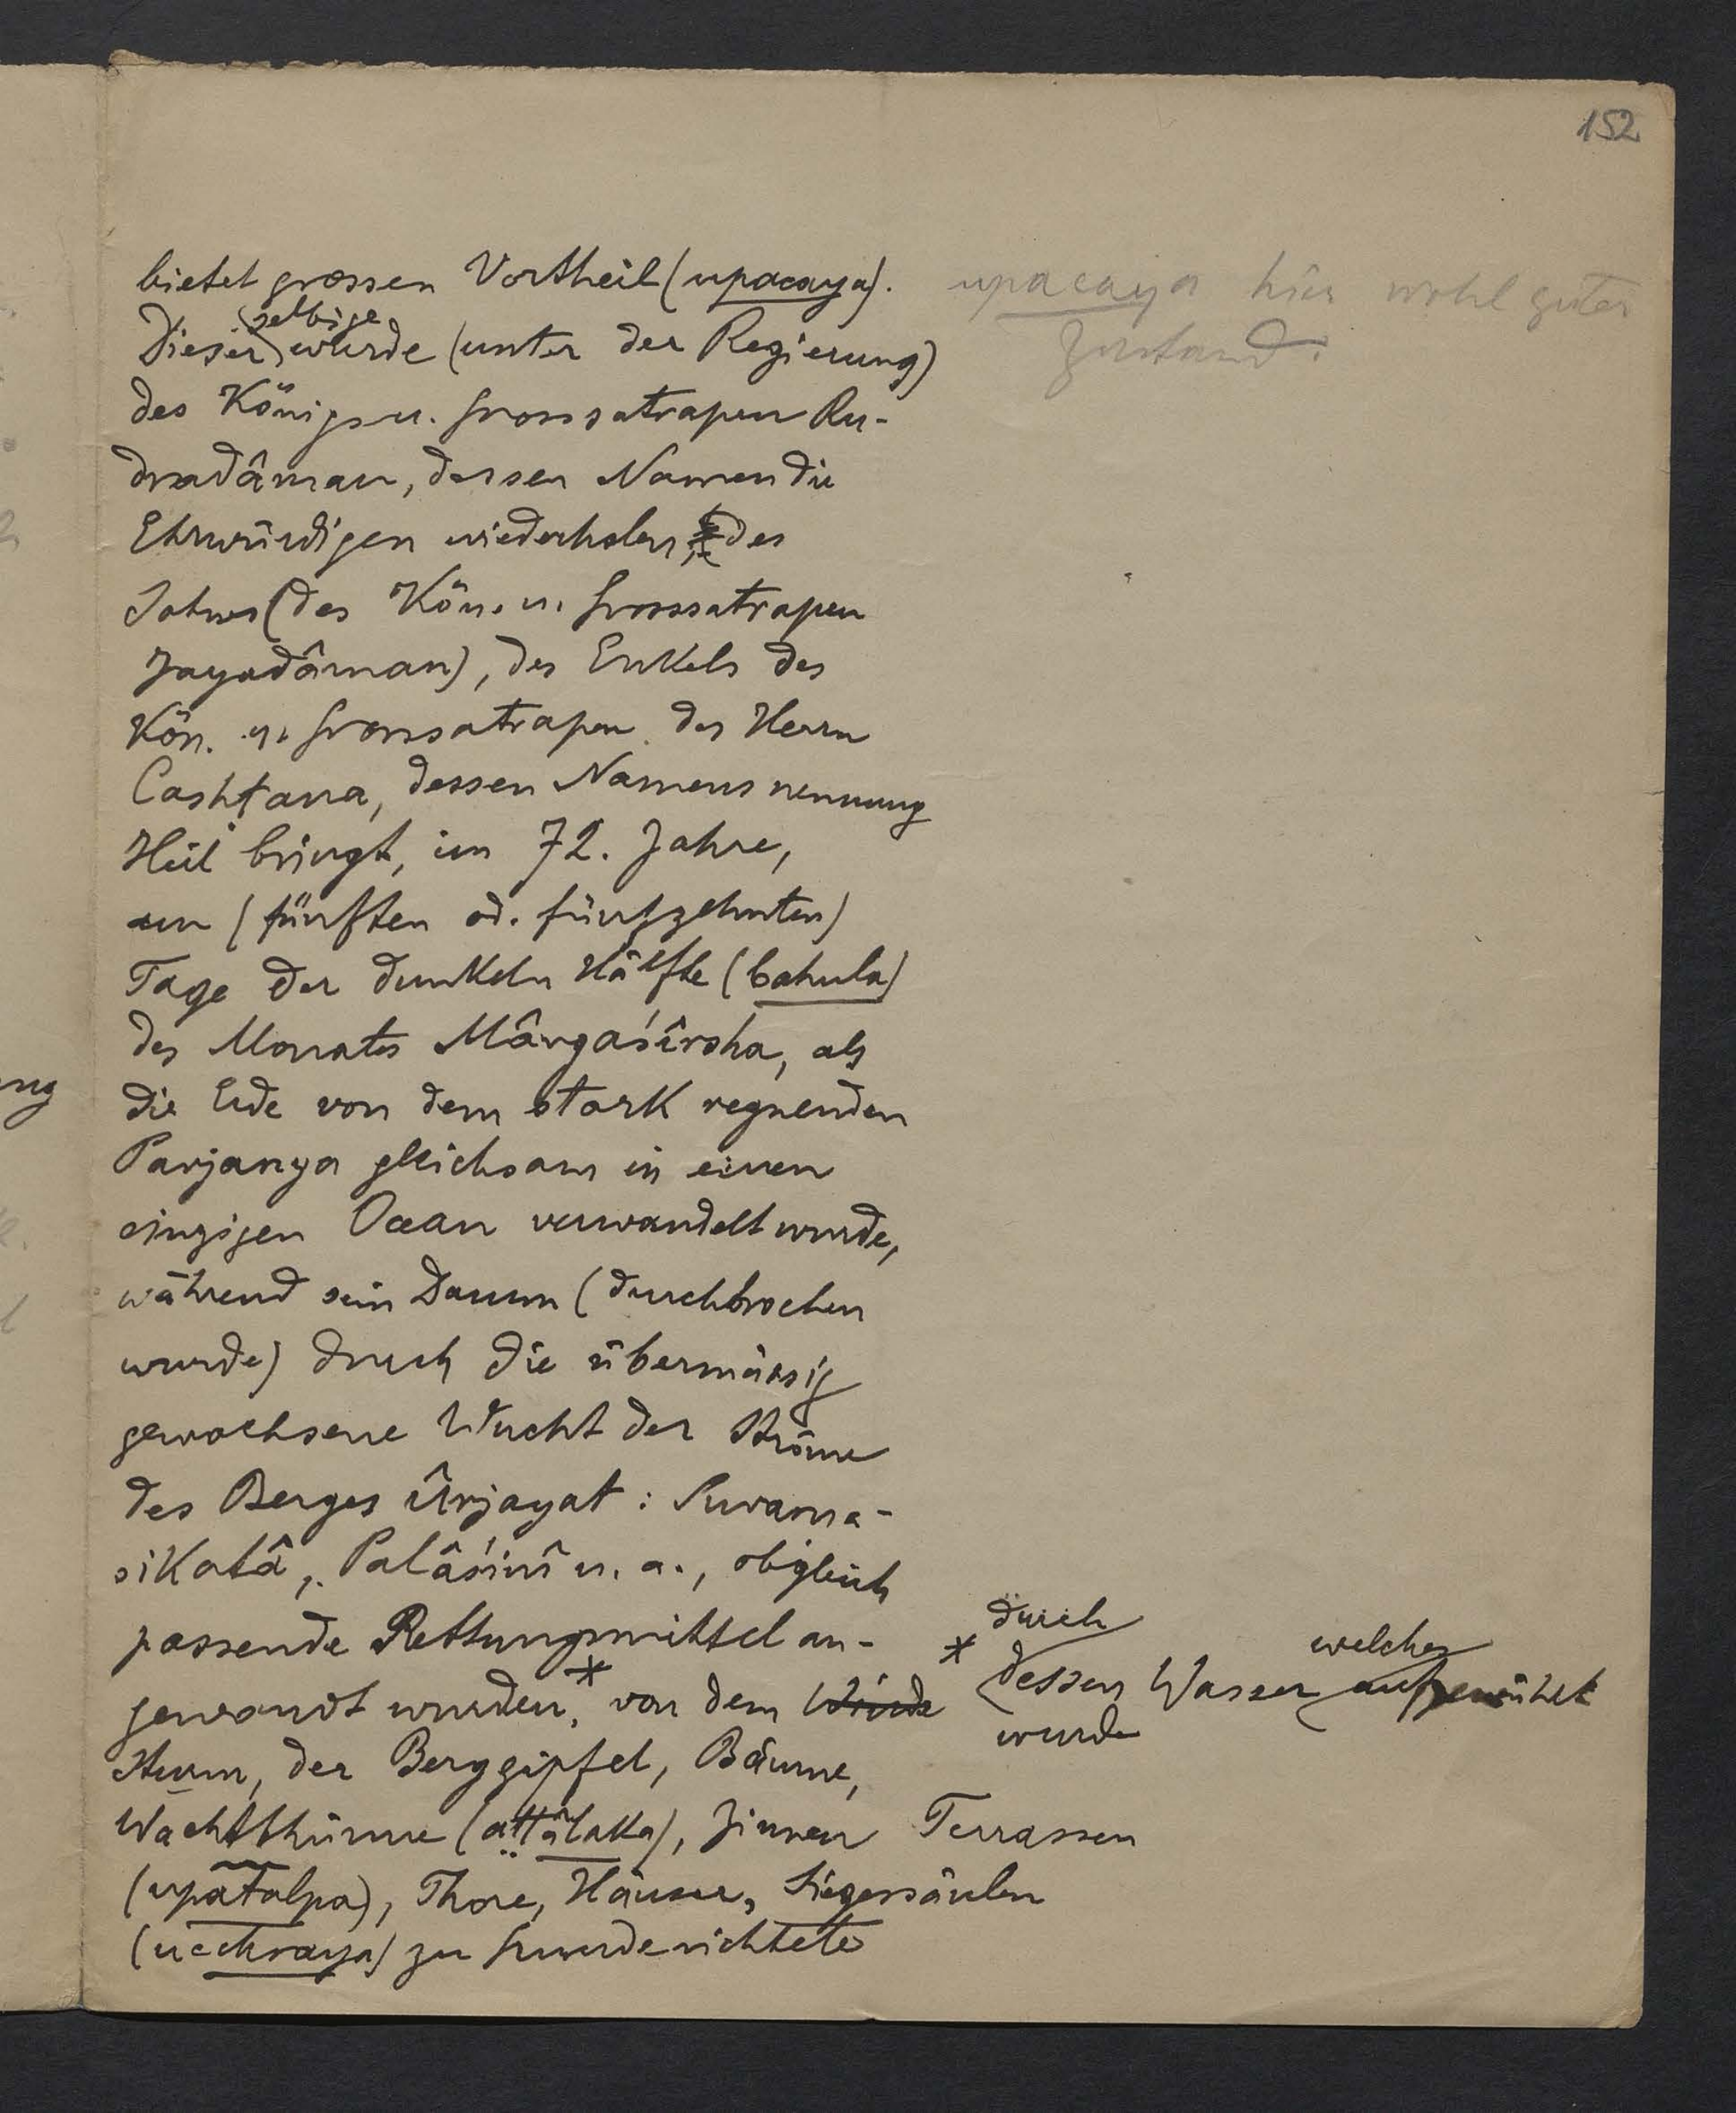 152
bietet grossen Vortheil (upacaya).
upacaya hier wohl guter
Zustand.
selbige
Dieser wurde (unter der Regierung)
des Königs u. Grosssatrapen Ru-
dradâman, dessen Namen die
Ehrwürdigen wiederholen, des
Sohnes (des Kön. u. Grosssatrapen
Jayadâman), des Enkels des
Kön. u. Grosssatrapen des Herrn
Cashṭana, dessen Namensnennung
Heil bringt, im 72. Jahre,
am (fünften od. fünfzehnten)
Tage der dunkeln Hälfte (bahula)
des Monates Mârgaśîrsha, als
die Erde von dem stark regnenden
Parjanya gleichsam in einen
einzigen Ocean verwandelt wurde,
während sein Damm (durchbrochen
wurde) durch die übermässig
gewachsene Wucht der Ströme
des Berges Ûrjayat: Suvarṇa-
sikatâ, Palâśinî u. a., obgleich
passende Rettungsmittel an-
gewandt wurden,* von dem Winde
Sturm, der Berggipfel, Bäume,
Wachtthürme (aṭṭâlaka), Zinnen Terrassen
(upatalpa), Thore, Häuser, Siegessäulen
(ucchraya) zu Grunde richtete
durch
* dessen Wasser welches aufgewühlt
wurde